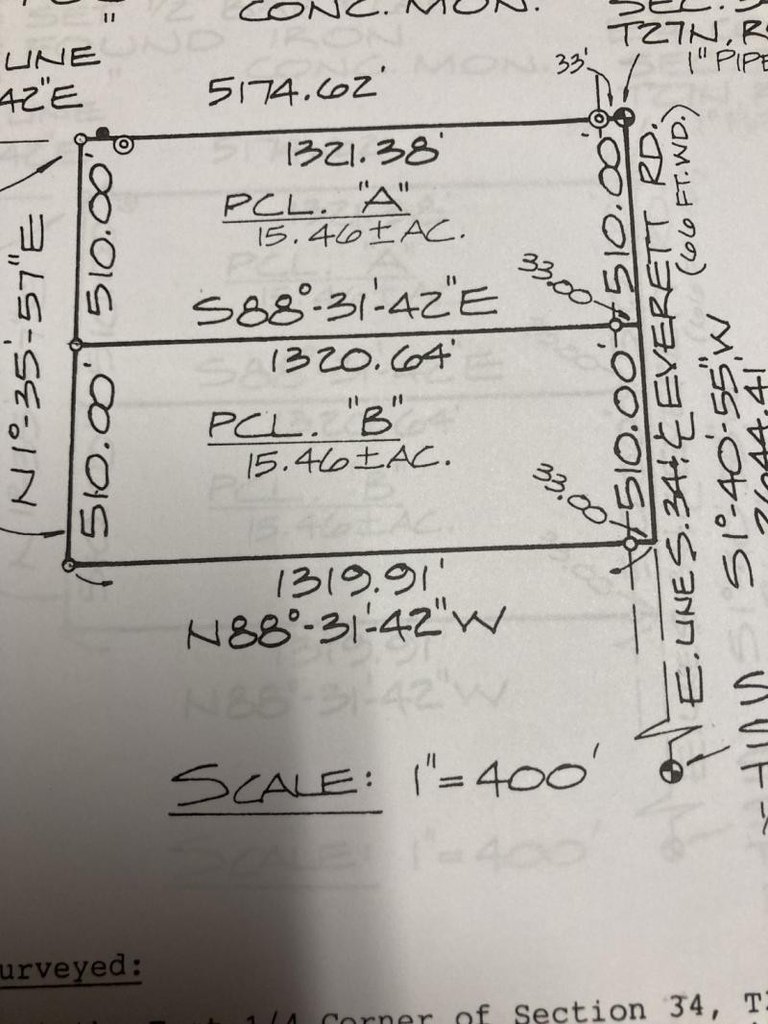 CONC. MON.
T27N, R
1" PIPE
LINE
42"E
5174.62'
33'
1321.38'
PCL. "A"
15.46±AC.
510.00'
510.00'
S88°-31'-42"E
33.00
1320.64'
PCL. "B"
15.46±AC.
510.00'
510.00'
33.00
1319.91'
N88°-31'-42"W
N1°-35'-57"E
E. LINE S.34; ℄ EVERETT RD.
(66 FT. WD.)
S1°-40'-55"W
2644.41'
SCALE: 1"=400'
urveyed:
1/4 Corner of Section 34,